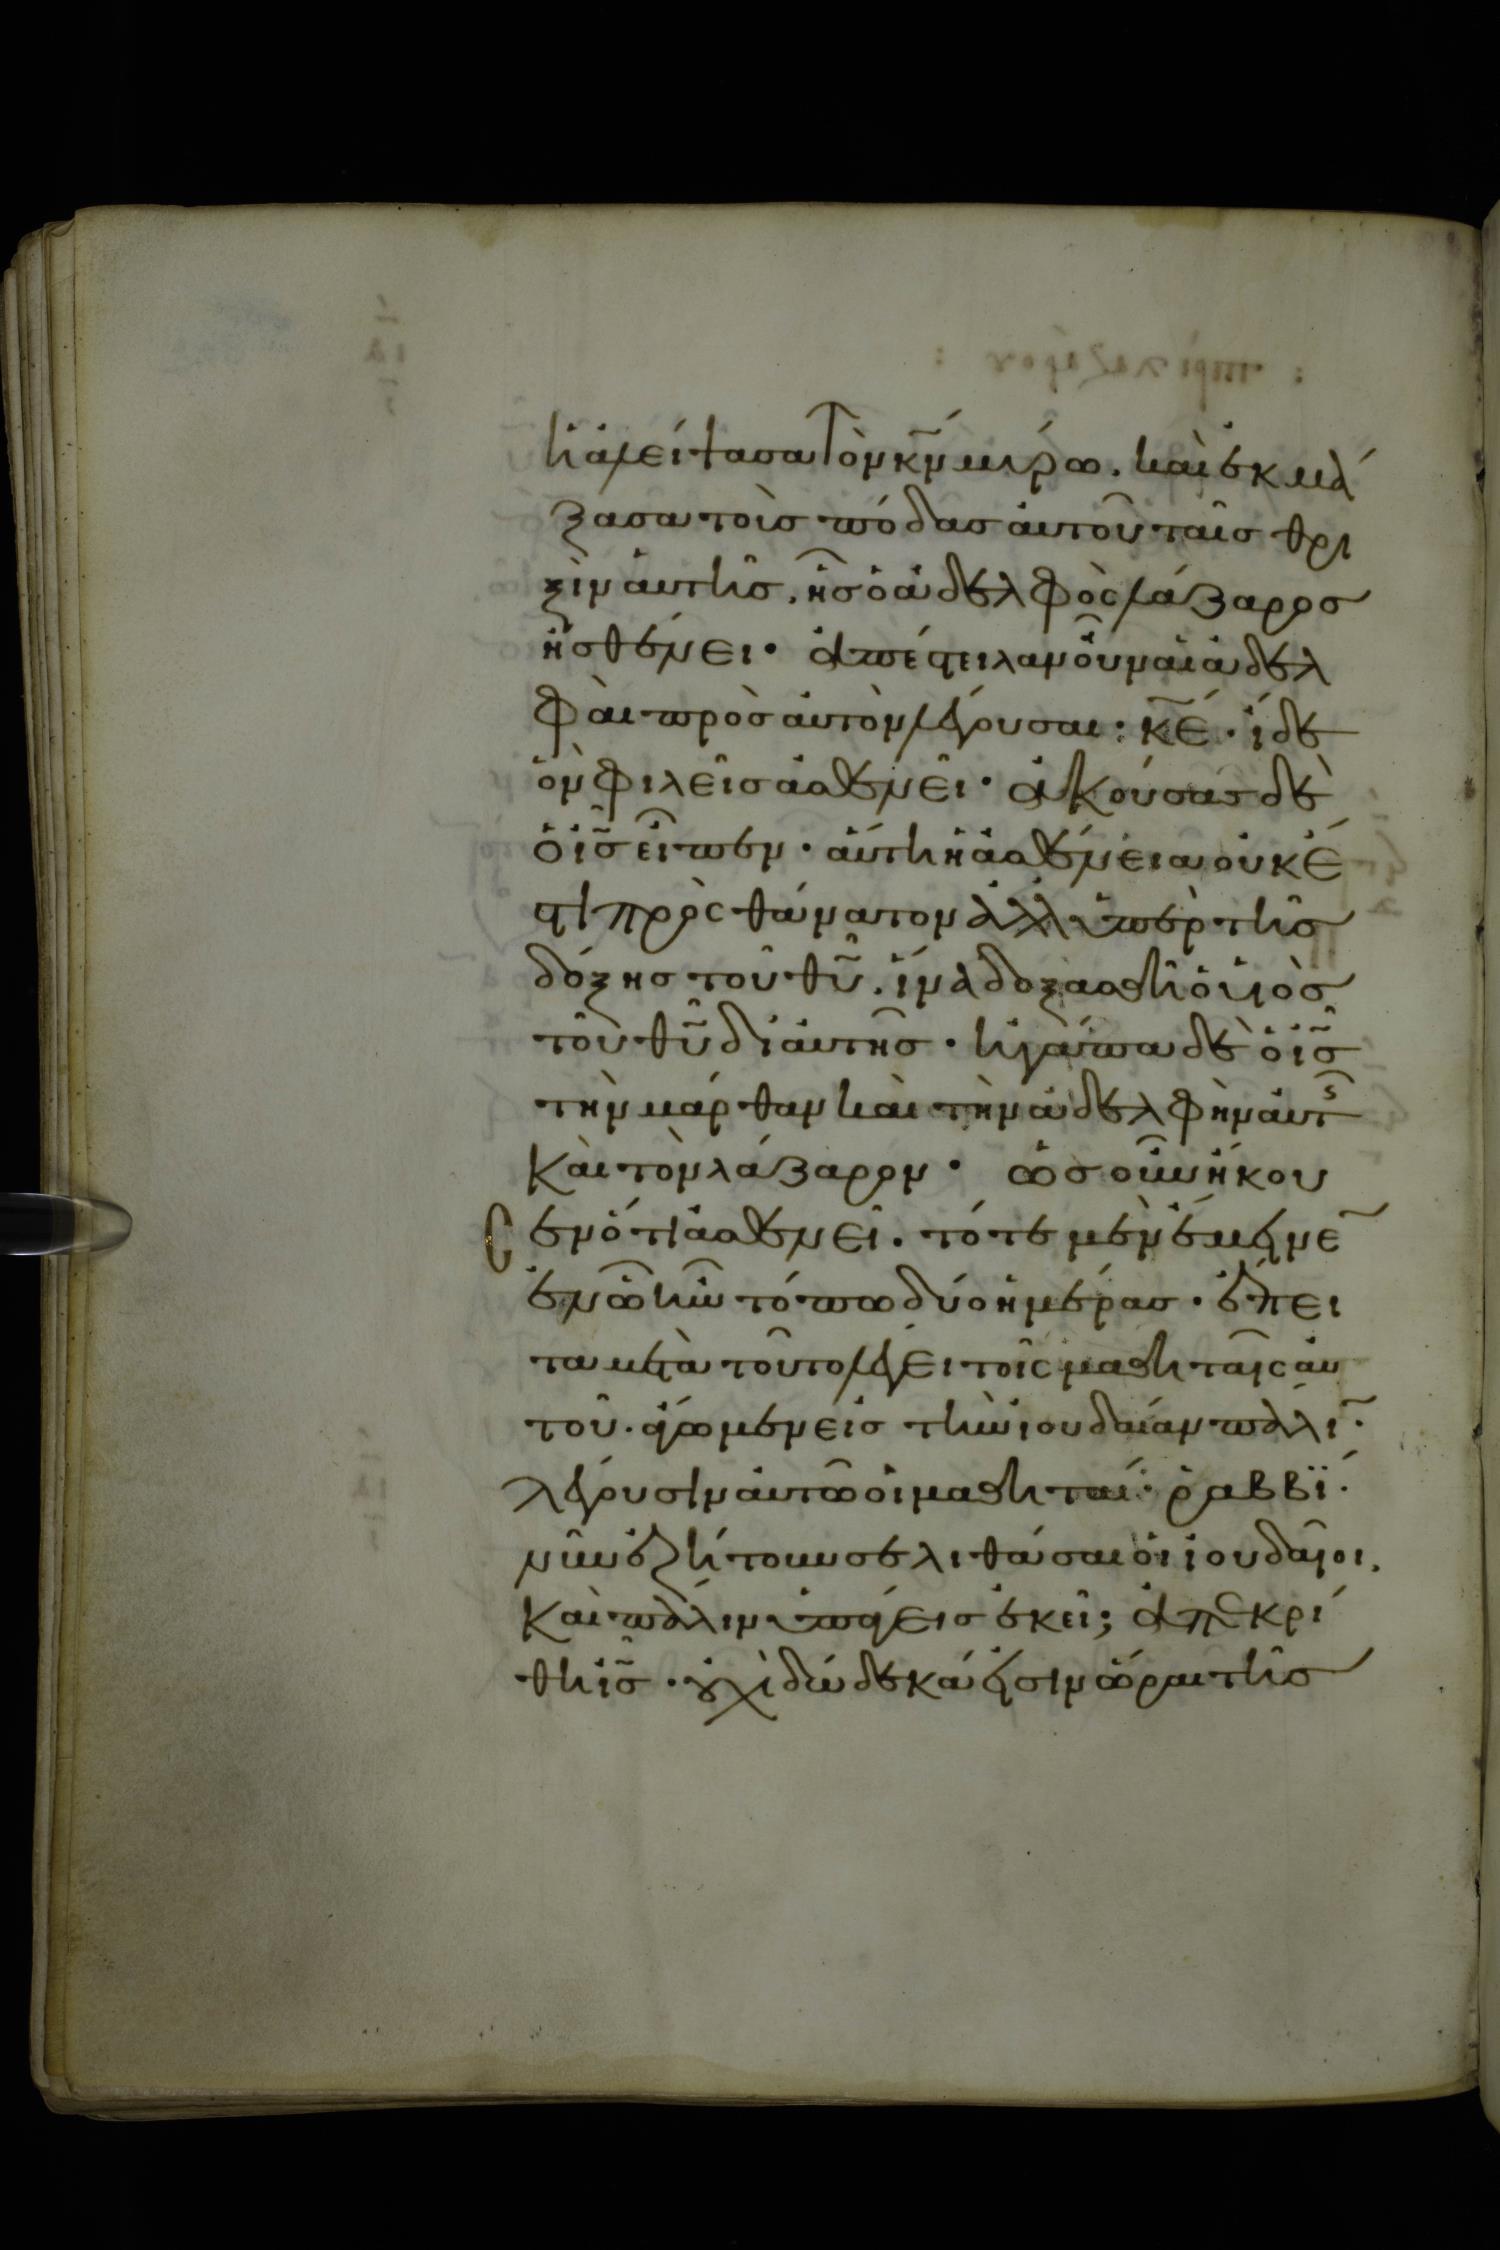 ἡ ἀλείψασα τὸν κ̅ν̅ μύρω. καὶ ἐκμά
ξασα τοὺς πόδας αὐτοῦ ταῖς θρι
ξὶν αὐτῆς. ἧς ὁ ἀδελφὸς λάζαρος
ἠσθένει· ἀπέστειλαν οὖν αἱ ἀδελ
φαὶ πρὸς αὐτὸν λέγουσαι: κ̅ε̅· ἴδε
ὃν φιλεῖς ἀσθενεῖ· ἀκούσας δὲ
ὁ ι̅ς̅ εἶπεν· αὕτη ἡ ἀσθένεια οὐκ ἔ
στι πρὸς θάνατον ἀλλ' ὑπὲρ τῆς
δόξης τοῦ θ̅υ̅. ἵνα δοξασθῆ ὁ υἱὸς
τοῦ θ̅υ̅ δι' αὐτῆς· ἠγάπα δὲ ὁ ι̅ς̅
τὴν μάρθαν καὶ τὴν ἀδελφὴν αὐτ
καὶ τὸν λάζαρον· ὡς οὖν ἤκου
σεν ὅτι ἀσθενεῖ. τότε μὲν ἔμεινε
ἐν ὧ ἦν τόπω δύο ἡμέρας· ἔπει
τα μετὰ τοῦτο λέγει τοῖς μαθηταῖς αὐ
τοῦ. ἄγωμεν εἰς τὴν ἰουδαίαν πάλι̅·
λέγουσιν αὐτῶ οἱ μαθηταί· ῥαββί·
νῦν ἐζήτουν σε λιθάσαι οἱ ἰουδαῖοι.
καὶ πάλιν ὑπάγεις ἐκεῖ; ἀπεκρί
θη ι̅ς̅· οὐχὶ δώδεκά εἰσιν ὧραι τῆς